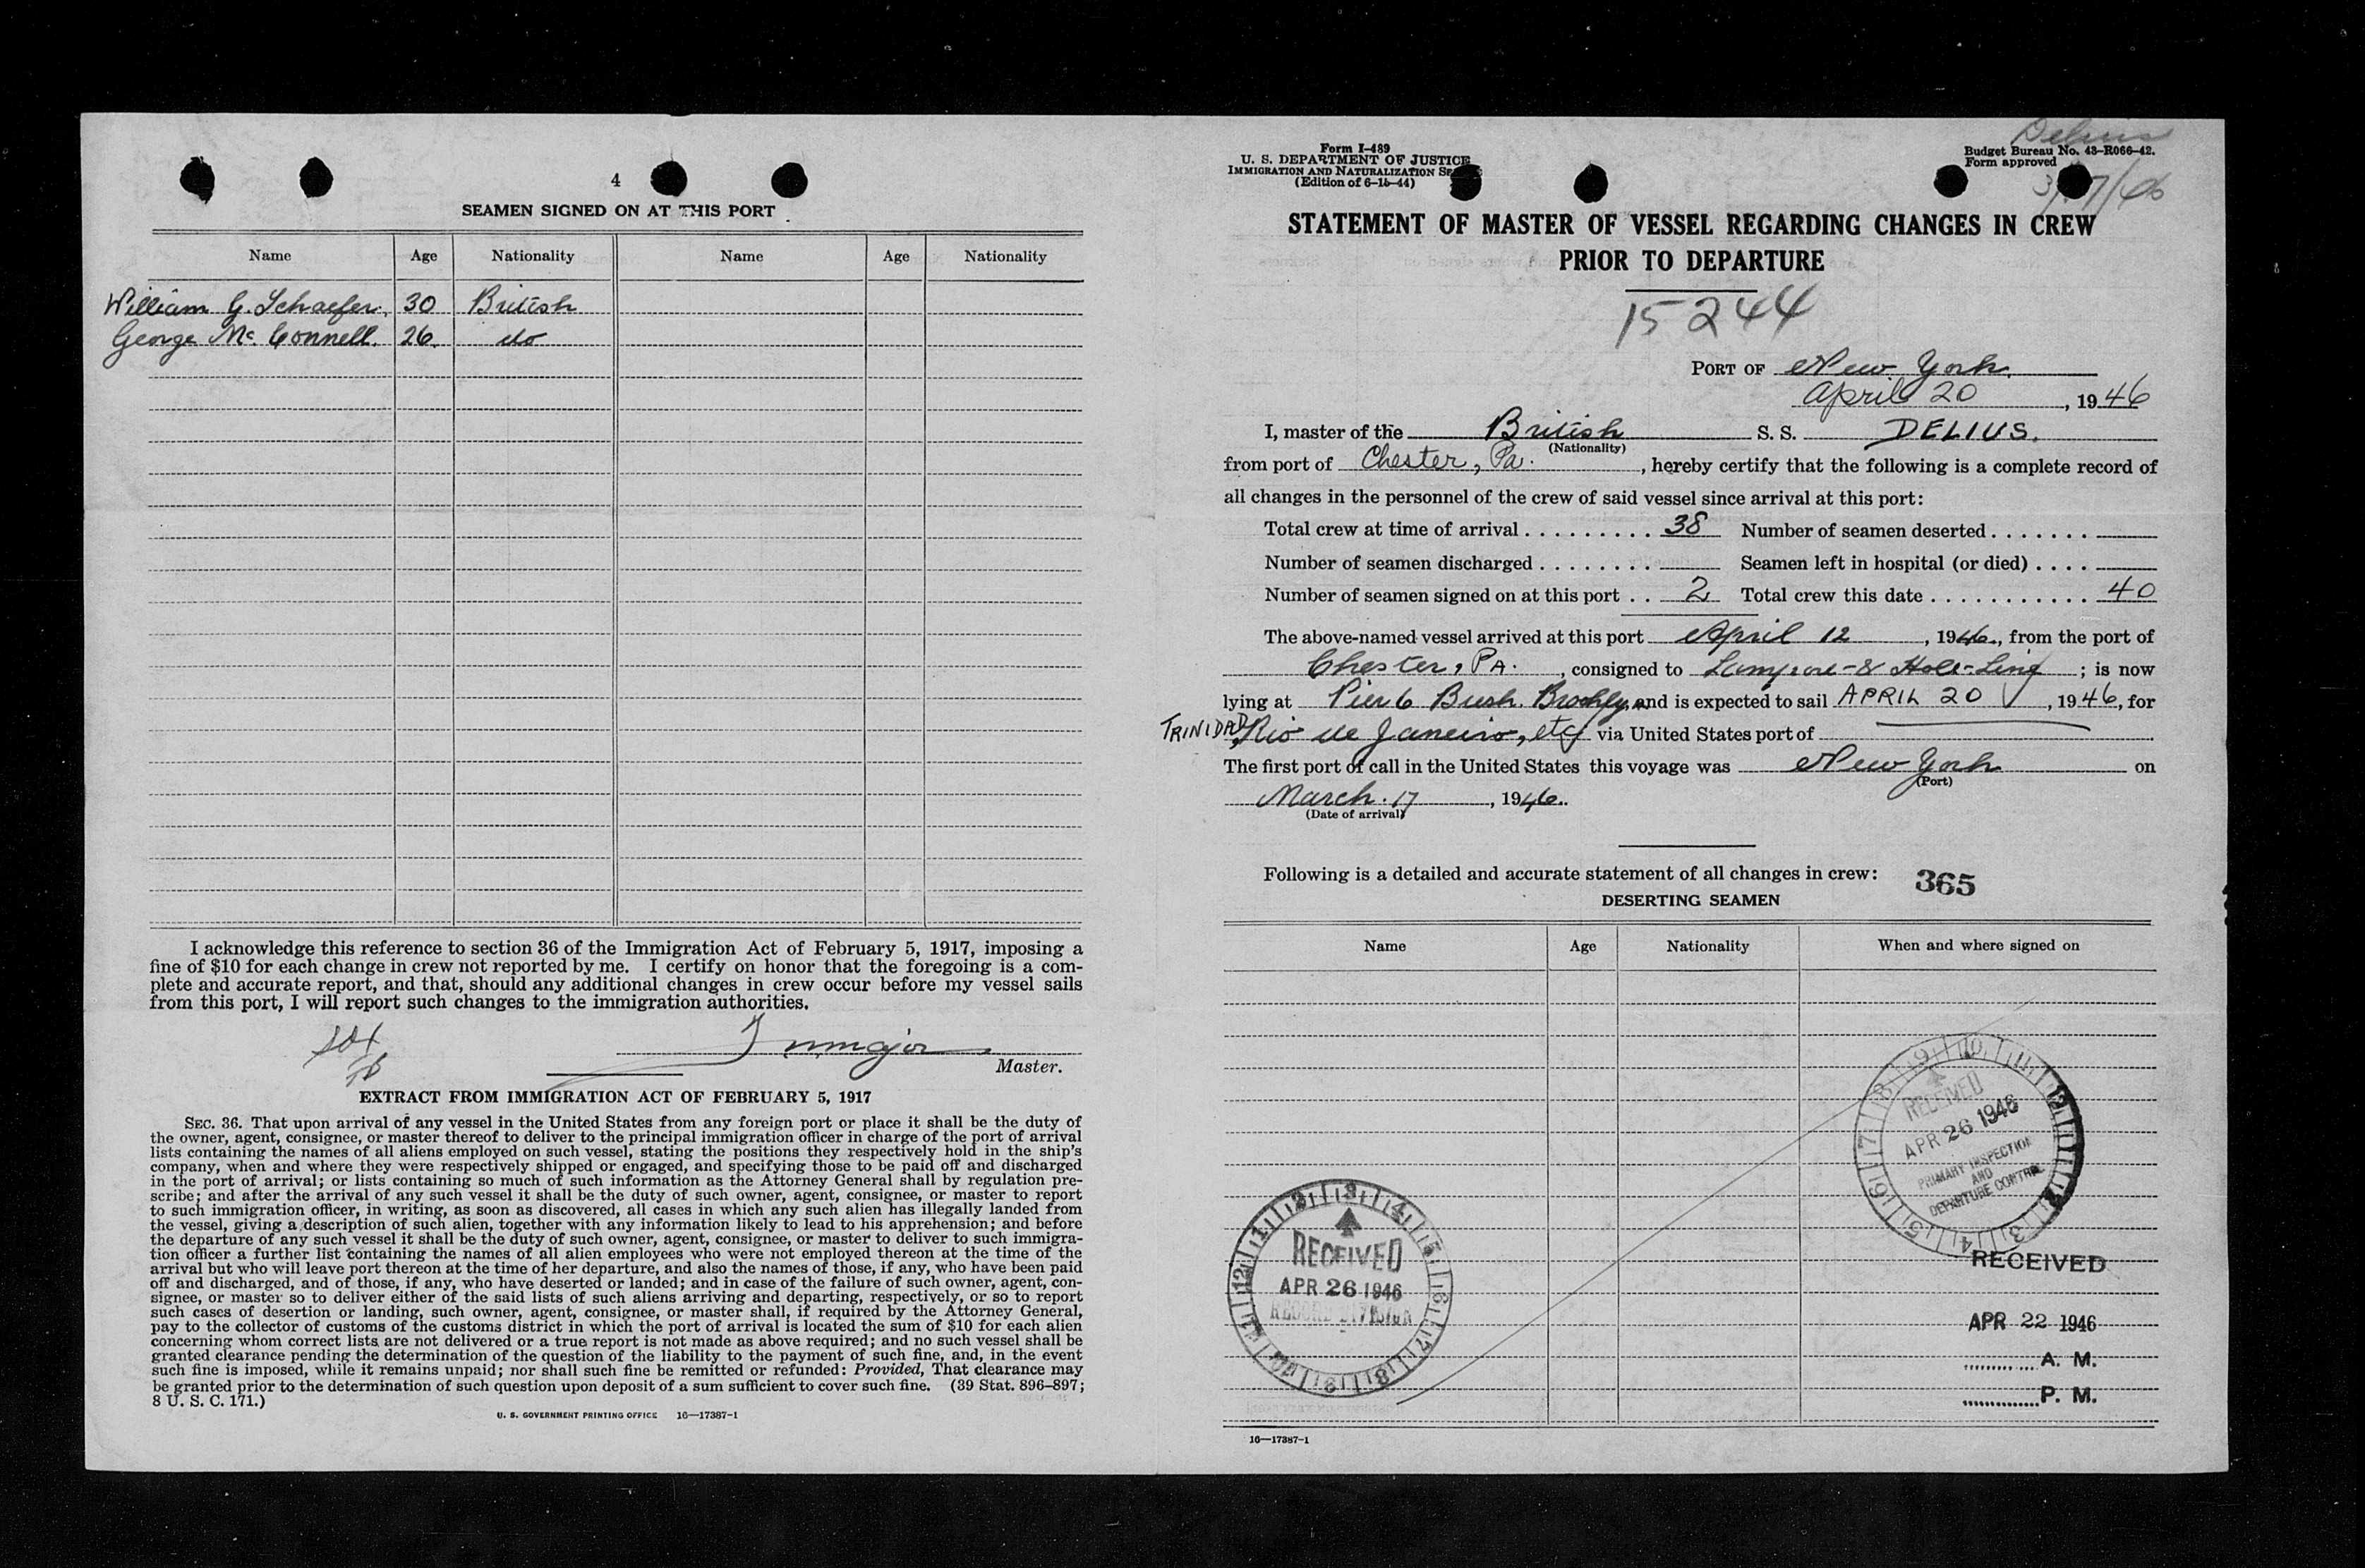 4
SEAMEN SIGNED ON AT THIS PORT
Name Age Nationality Name Age Nationality
William G. Schaefer. 30 British
George Mc. Connell. 26. do
I acknowledge this reference to section 36 of the Immigration Act of February 5, 1917, imposing a
fine of $10 for each change in crew not reported by me. I certify on honor that the foregoing is a com-
plete and accurate report, and that, should any additional changes in crew occur before my vessel sails
from this port, I will report such changes to the immigration authorities.
Master.
EXTRACT FROM IMMIGRATION ACT OF FEBRUARY 5, 1917
SEC. 36. That upon arrival of any vessel in the United States from any foreign port or place it shall be the duty of
the owner, agent, consignee, or master thereof to deliver to the principal immigration officer in charge of the port of arrival
lists containing the names of all aliens employed on such vessel, stating the positions they respectively hold in the ship's
company, when and where they were respectively shipped or engaged, and specifying those to be paid off and discharged
in the port of arrival; or lists containing so much of such information as the Attorney General shall by regulation pre-
scribe; and after the arrival of any such vessel it shall be the duty of such owner, agent, consignee, or master to report
to such immigration officer, in writing, as soon as discovered, all cases in which any such alien has illegally landed from
the vessel, giving a description of such alien, together with any information likely to lead to his apprehension; and before
the departure of any such vessel it shall be the duty of such owner, agent, consignee, or master to deliver to such immigra-
tion officer a further list containing the names of all alien employees who were not employed thereon at the time of the
arrival but who will leave port thereon at the time of her departure, and also the names of those, if any, who have been paid
off and discharged, and of those, if any, who have deserted or landed; and in case of the failure of such owner, agent, con-
signee, or master so to deliver either of the said lists of such aliens arriving and departing, respectively, or so to report
such cases of desertion or landing, such owner, agent, consignee, or master shall, if required by the Attorney General,
pay to the collector of customs of the customs district in which the port of arrival is located the sum of $10 for each alien
concerning whom correct lists are not delivered or a true report is not made as above required; and no such vessel shall be
granted clearance pending the determination of the question of the liability to the payment of such fine, and, in the event
such fine is imposed, while it remains unpaid; nor shall such fine be remitted or refunded: Provided, That clearance may
be granted prior to the determination of such question upon deposit of a sum sufficient to cover such fine. (39 Stat. 896–897;
8 U. S. C. 171.)
U. S. GOVERNMENT PRINTING OFFICE 16—17387-1
Delius
Form I-489
U. S. DEPARTMENT OF JUSTICE
IMMIGRATION AND NATURALIZATION
(Edition of 6-15-44)
Budget Bureau No. 43-R066-42.
Form approved
STATEMENT OF MASTER OF VESSEL REGARDING CHANGES IN CREW
PRIOR TO DEPARTURE
15244
PORT OF New York.
April 20, 1946
I, master of the British S. S. DELIUS.
(Nationality)
from port of Chester, Pa., hereby certify that the following is a complete record of
all changes in the personnel of the crew of said vessel since arrival at this port:
Total crew at time of arrival 38 Number of seamen deserted
Number of seamen discharged Seamen left in hospital (or died)
Number of seamen signed on at this port 2 Total crew this date 40
The above-named vessel arrived at this port April 12, 1946., from the port of
Chester, PA., consigned to Lamport & Holt Line; is now
lying at Pier 6 Bush. Brooklyn and is expected to sail APRIL 20, 1946, for
TRINIDAD, Rio de Janeiro, etc via United States port of
The first port of call in the United States this voyage was New York on
(Port)
March. 17, 1946.
(Date of arrival)
Following is a detailed and accurate statement of all changes in crew: 365
DESERTING SEAMEN
Name Age Nationality When and where signed on
RECEIVED
APR 26 1946
PRIMARY INSPECTION
AND
DEPARTURE CONTROL
RECEIVED
APR 26 1946
RECORD DIVISION
RECEIVED
APR 22 1946
A. M.
P. M.
16—17387-1